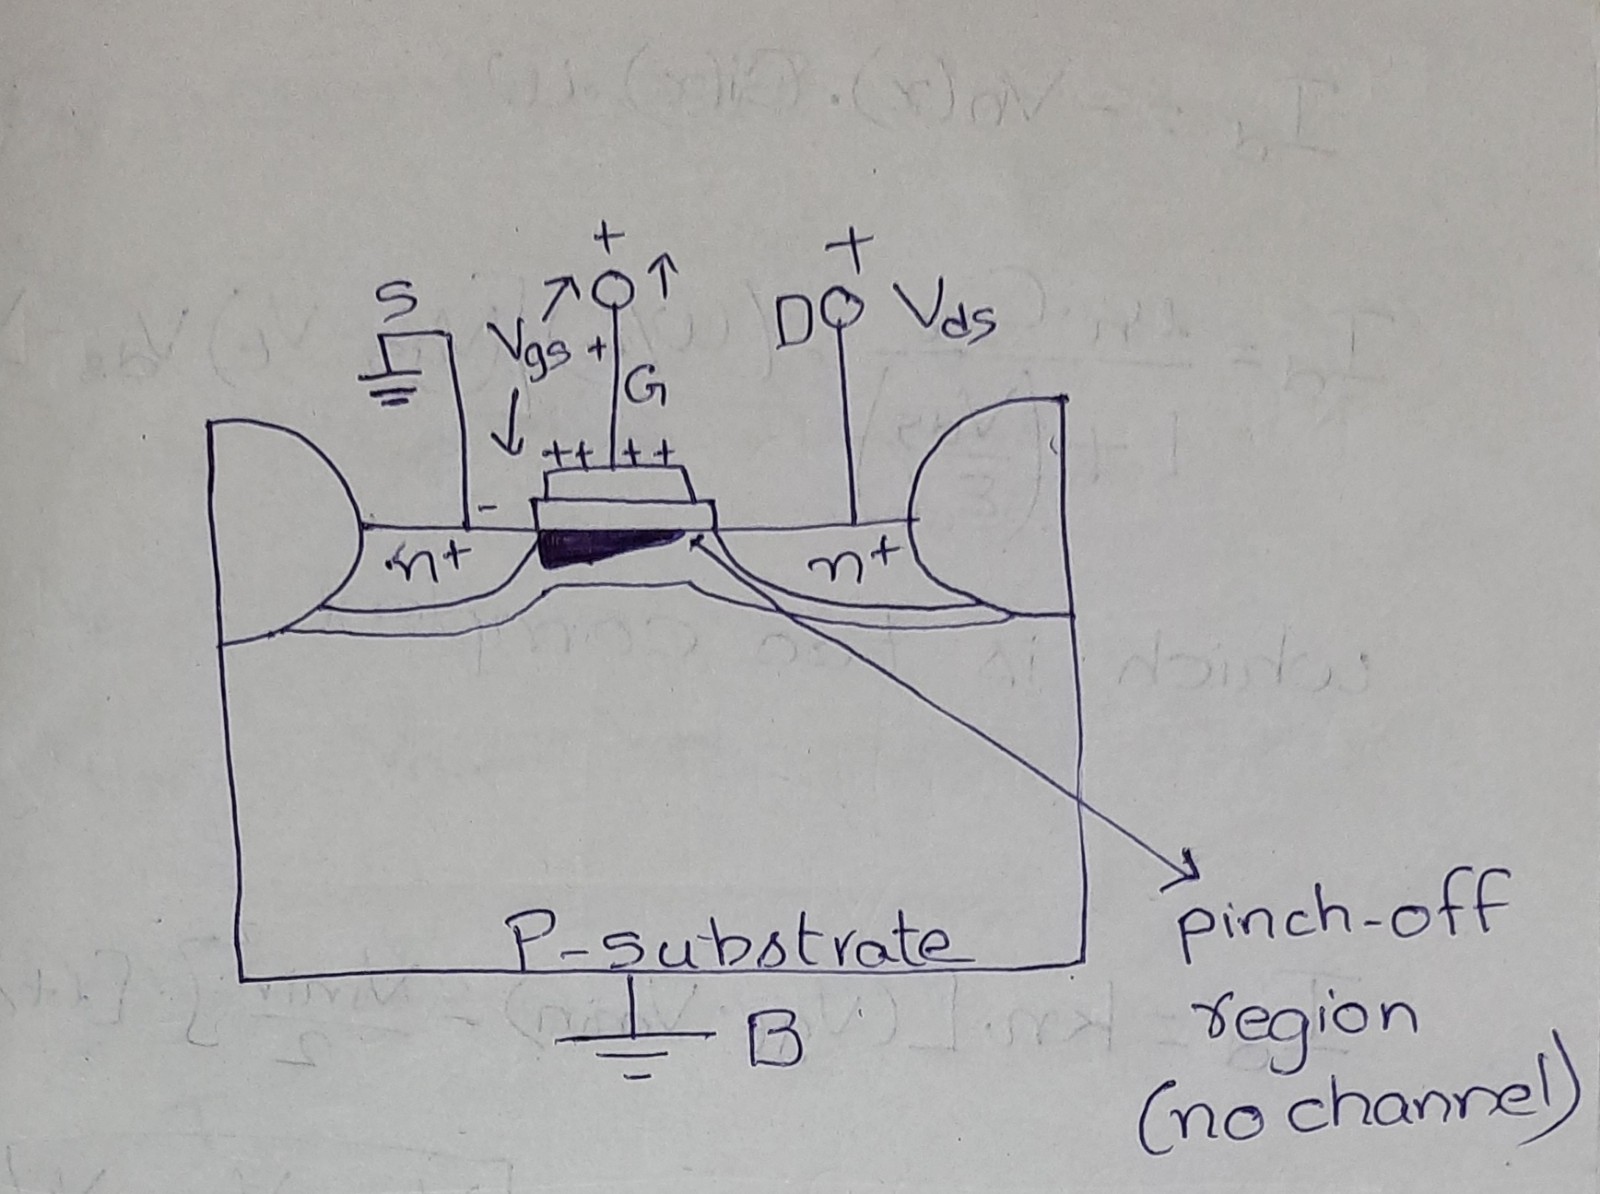 +
+
S
D
Vds
Vgs +
G
++ ++
-
n+
n+
P-substrate
B
pinch-off
region
(no channel)